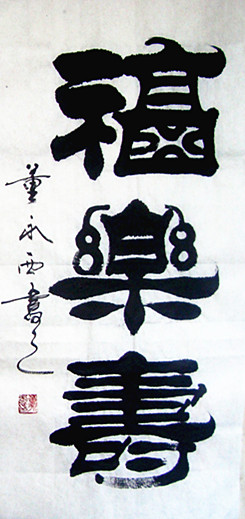 福樂壽
董永西書之